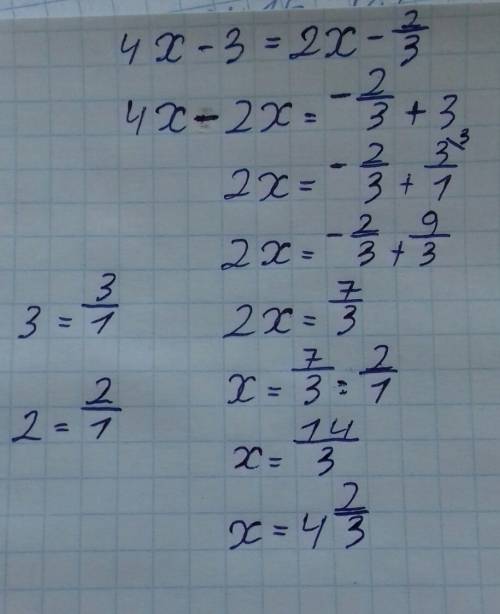 4x - 3 = 2x - 2/3
4x - 2x = -2/3 + 3
2x = -2/3 + 3\3/1
2x = -2/3 + 9/3
3 = 3/1
2x = 7/3
x = 7/3 : 2/1
2 = 2/1
x = 14/3
x = 4 2/3